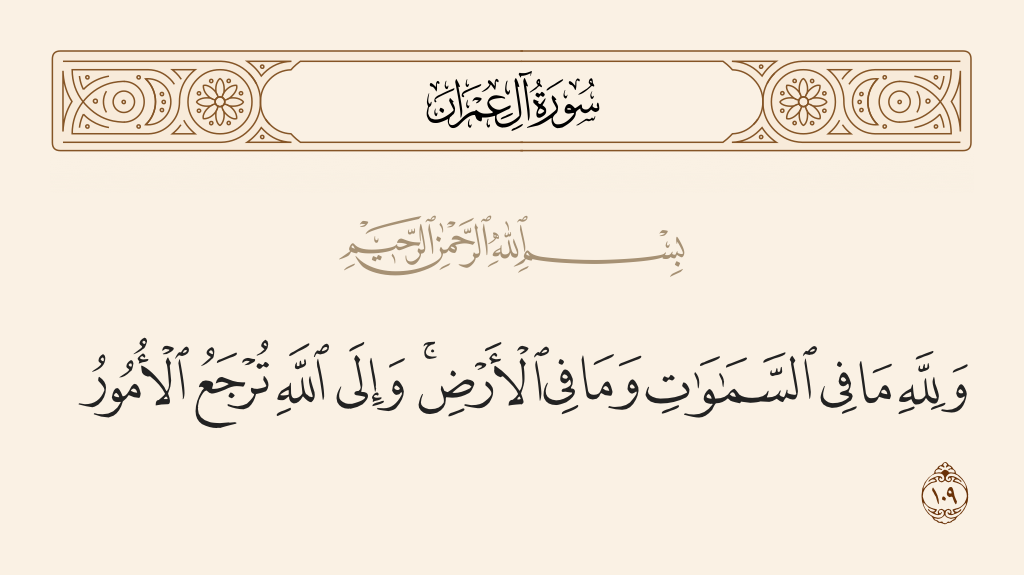 سُورَةُ آلِ عِمْرَان
بِسْمِ ٱللَّهِ ٱلرَّحْمَٰنِ ٱلرَّحِيمِ
وَلِلَّهِ مَا فِى ٱلسَّمَٰوَٰتِ وَمَا فِى ٱلْأَرْضِ ۚ وَإِلَى ٱللَّهِ تُرْجَعُ ٱلْأُمُورُ
١٠٩